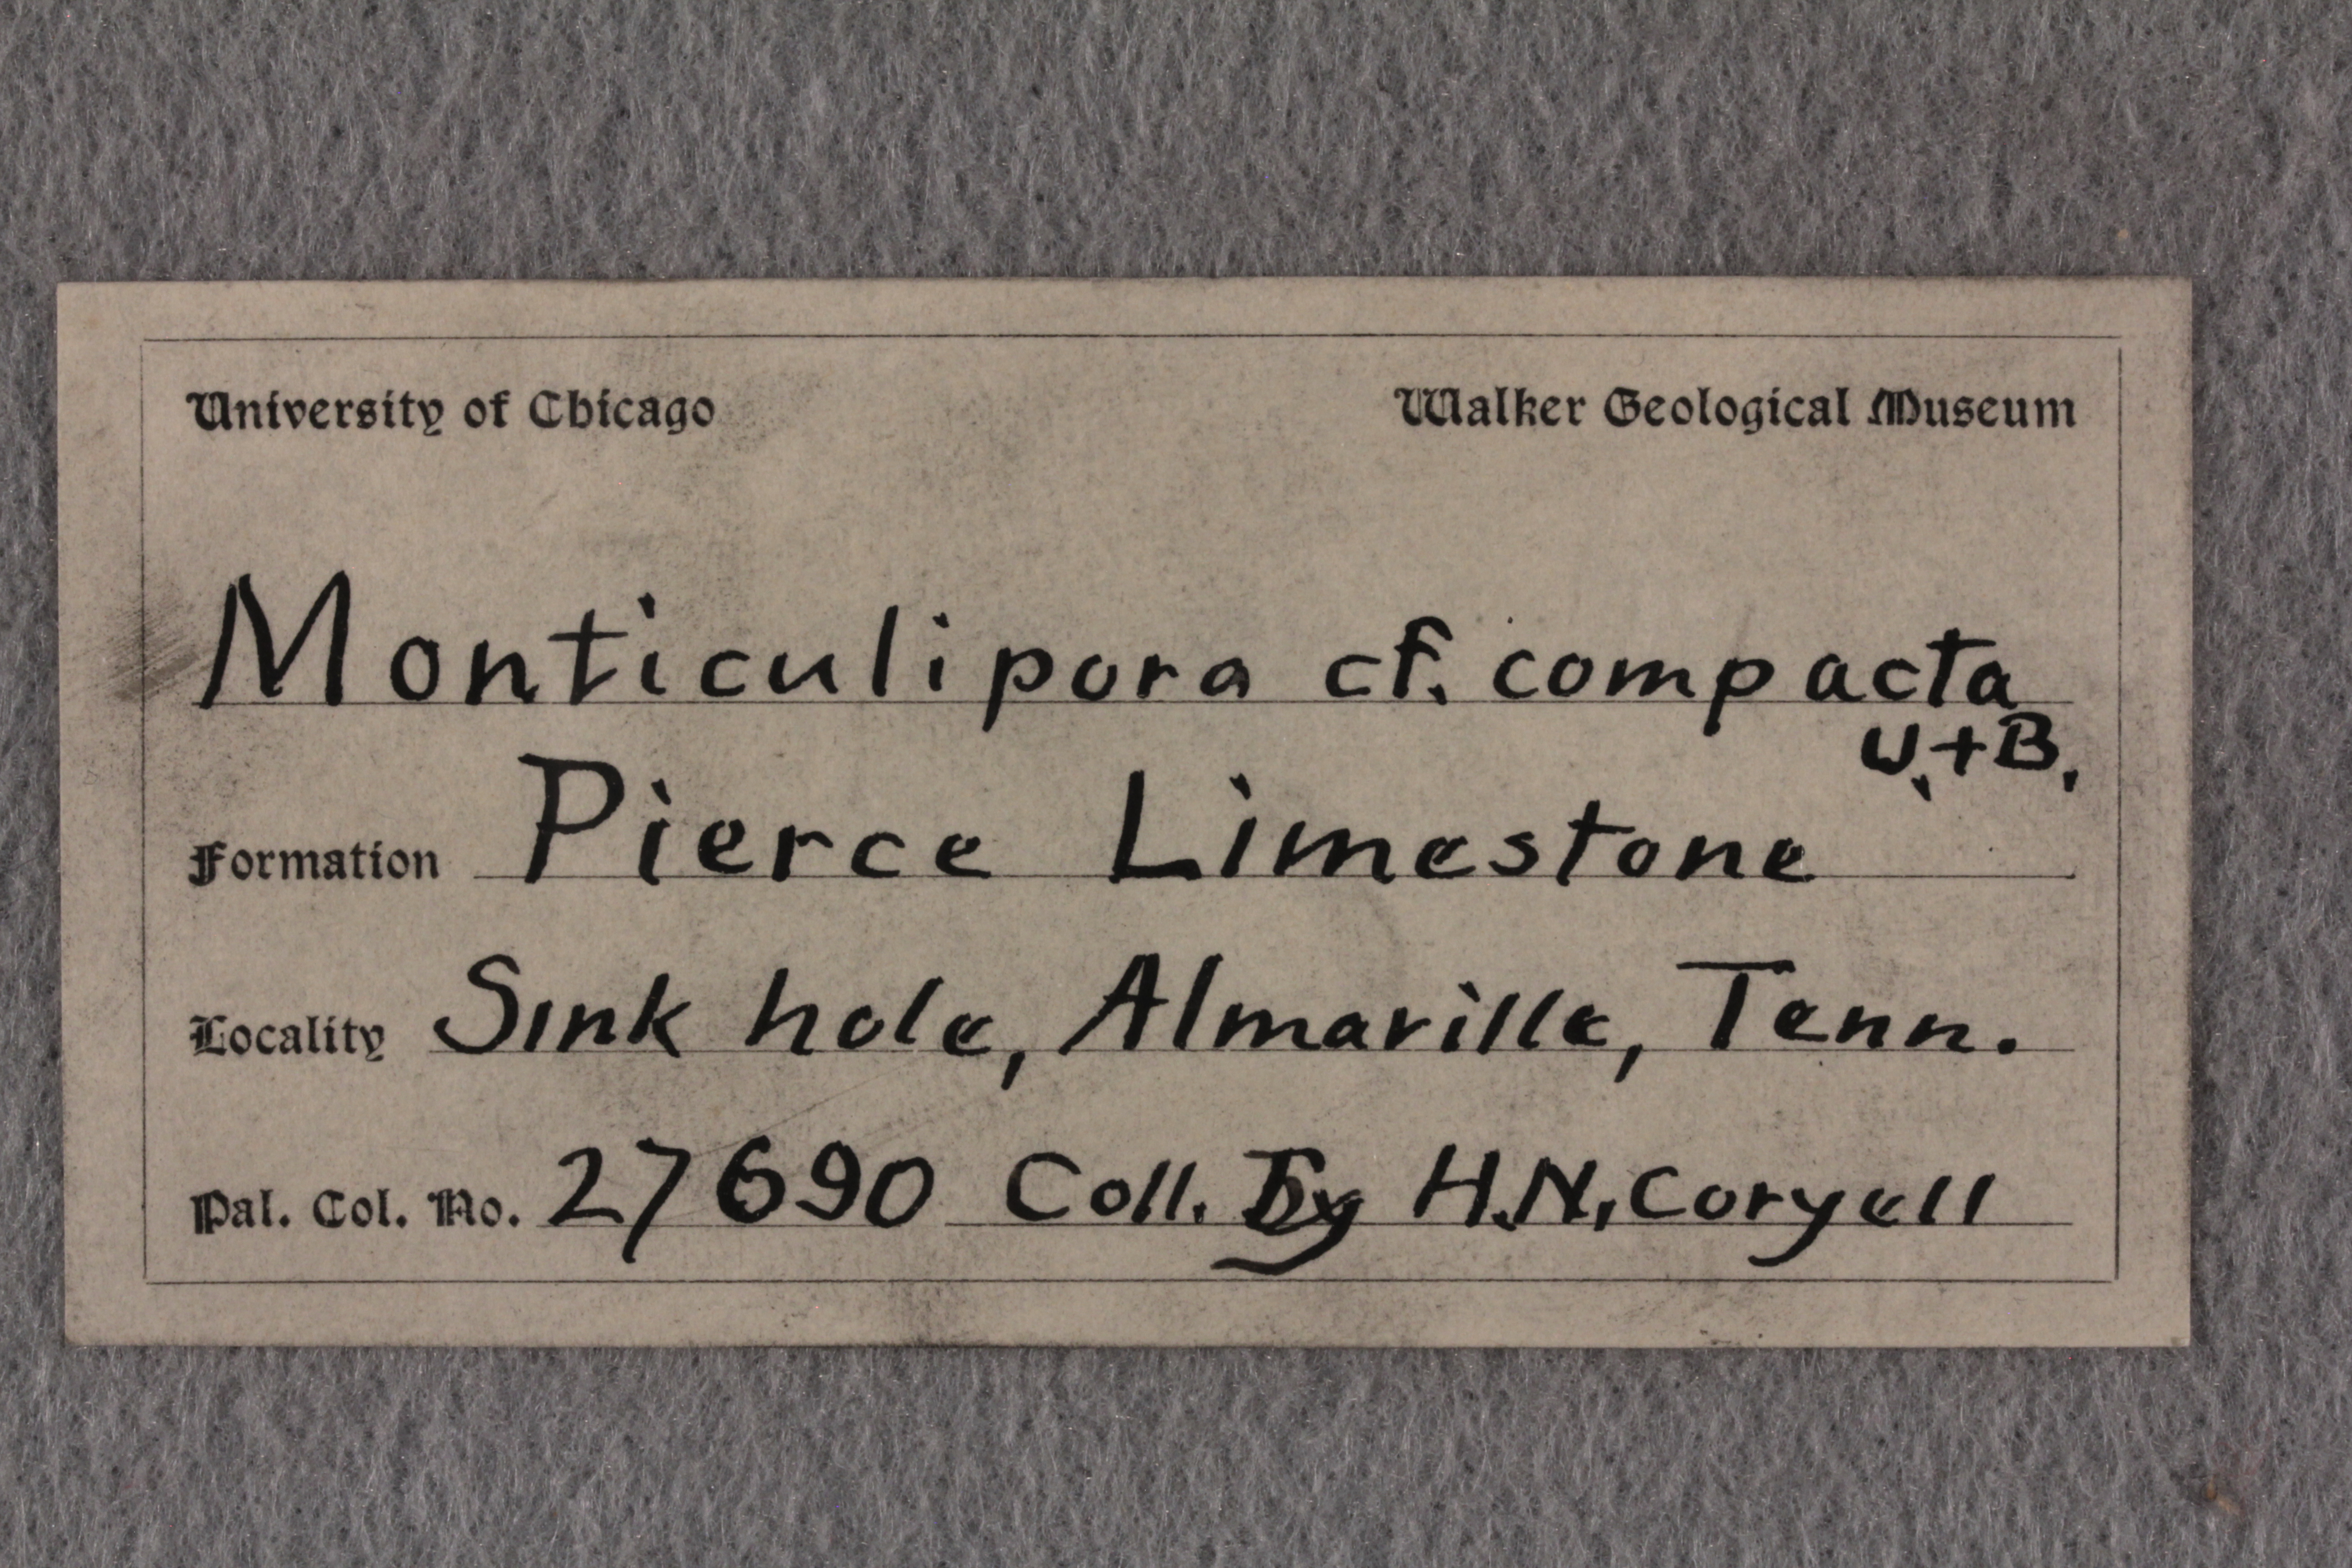 University of Chicago Walker Geological Museum
Monticulipora cf. compacta
U.+B.
Formation Pierce Limestone
Locality Sink hole, Almaville, Tenn.
Pal. Col. No. 27690 Coll. By H.N. Coryell